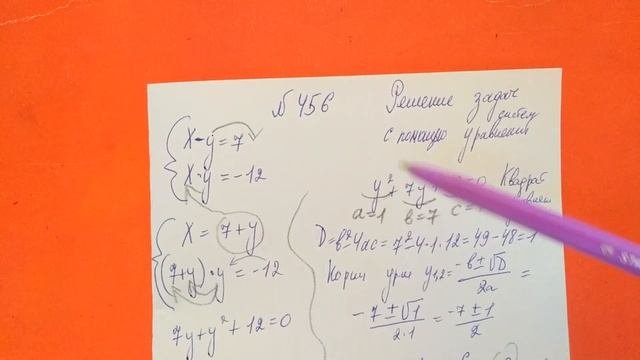 № 456
Решение задач
с помощью систем
уравнений
x - y = 7
x · y = -12
x = 7 + y
(7+y) · y = -12
7y + y² + 12 = 0
y² + 7y + =0 Квадрат
a=1 b=7 c=
D = b² - 4ac = 7² - 4·1·12 = 49 - 48 = 1
Корни урия y₁,₂ = -b ± √D / 2a =
-7 ± √1 / 2·1 = -7 ± 1 / 2